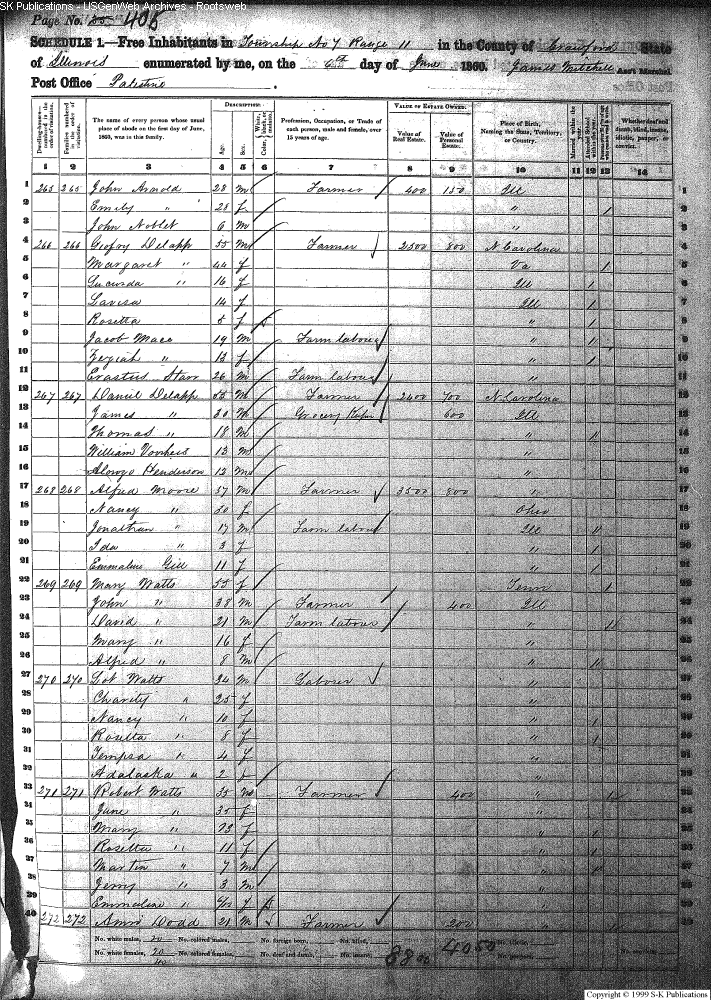 SK Publications - USGenWeb Archives - Rootsweb
Page No. 406
SCHEDULE 1.—Free Inhabitants in Township No 7 Range 11 in the County of Crawford State
of Illinois enumerated by me, on the 6th day of June 1860. James Mitchell Ass't Marshal.
Post Office Palestine
Dwelling-houses— numbered in the order of visitation.
Families numbered in the order of visitation.
The name of every person whose usual place of abode on the first day of June, 1860, was in this family.
DESCRIPTION.
Age. Sex. Color, White, black, or mulatto.
Profession, Occupation, or Trade of each person, male and female, over 15 years of age.
VALUE OF ESTATE OWNED.
Value of Real Estate. Value of Personal Estate.
Place of Birth, Naming the State, Territory, or Country.
Married within the year.
Attended School within the year.
Whether deaf and dumb, blind, insane, idiotic, pauper, or convict.
1 2 3 4 5 6 7 8 9 10 11 12 13 14
1 265 265 John Arnold 28 m Farmer 400 150 Ill 1
2 Emily " 23 f " 1 2
3 John Noblet 6 m " 3
4 266 266 Geofry Delapp 55 m Farmer 2500 800 N Carolina 4
5 Margaret " 44 f Va 1 5
6 Lucinda " 16 f Ill 1 6
7 Lavisa 14 f Ill 1 7
8 Rosetta 8 f " 1 8
9 Jacob Mace 19 m Farm labour " 9
10 " 13 f " 1 10
11 Erastus Starr 26 m Farm labour " 11
12 267 267 Daniel Delapp 55 m Farmer 2400 700 N Carolina 12
13 James " 30 m Grocery Keeper 600 Ill 13
14 Thomas " 18 m " 14
15 William Voorheis 13 m " 15
16 Alonzo Henderson 12 m 16
17 268 268 Alfred Moore 37 m Farmer 3500 800 " 17
18 Nancy " 30 f Ohio 18
19 Jonathan " 17 m Farm labour Ill 19
20 Ida " 3 f " 20
21 Emmaline Gill 11 f " 21
22 269 269 Mary Watts 55 f Tenn 22
23 John " 38 m Farmer 400 Ill 23
24 David " 21 m Farm labour " 24
25 Mary " 16 f 25
26 Alfred " 8 m " 26
27 270 270 Lot Watts 34 m Laborer " 27
28 Charity " 25 f 28
29 Nancy " 10 f " 29
30 Rosetta " 8 f " 30
31 Tempsa " 4 f " 31
32 Adalaska " 2 f 32
33 271 271 Robert Watts 35 m Farmer 400 " 33
34 Jane " 35 f " 34
35 Mary " 13 f " 35
36 Rosetta " 11 f " 36
37 Martin " 7 m " 37
38 Jerry " 3 m " 38
39 Emmaline " f 39
40 272 272 Dodd 21 m Farmer 200 " 40
No. white males, 20 No. colored males, No. foreign born, No. blind,
No. white females, 20 No. colored females, No. deaf and dumb, No. insane,
40
8800 4050
Copyright © 1999 S-K Publications